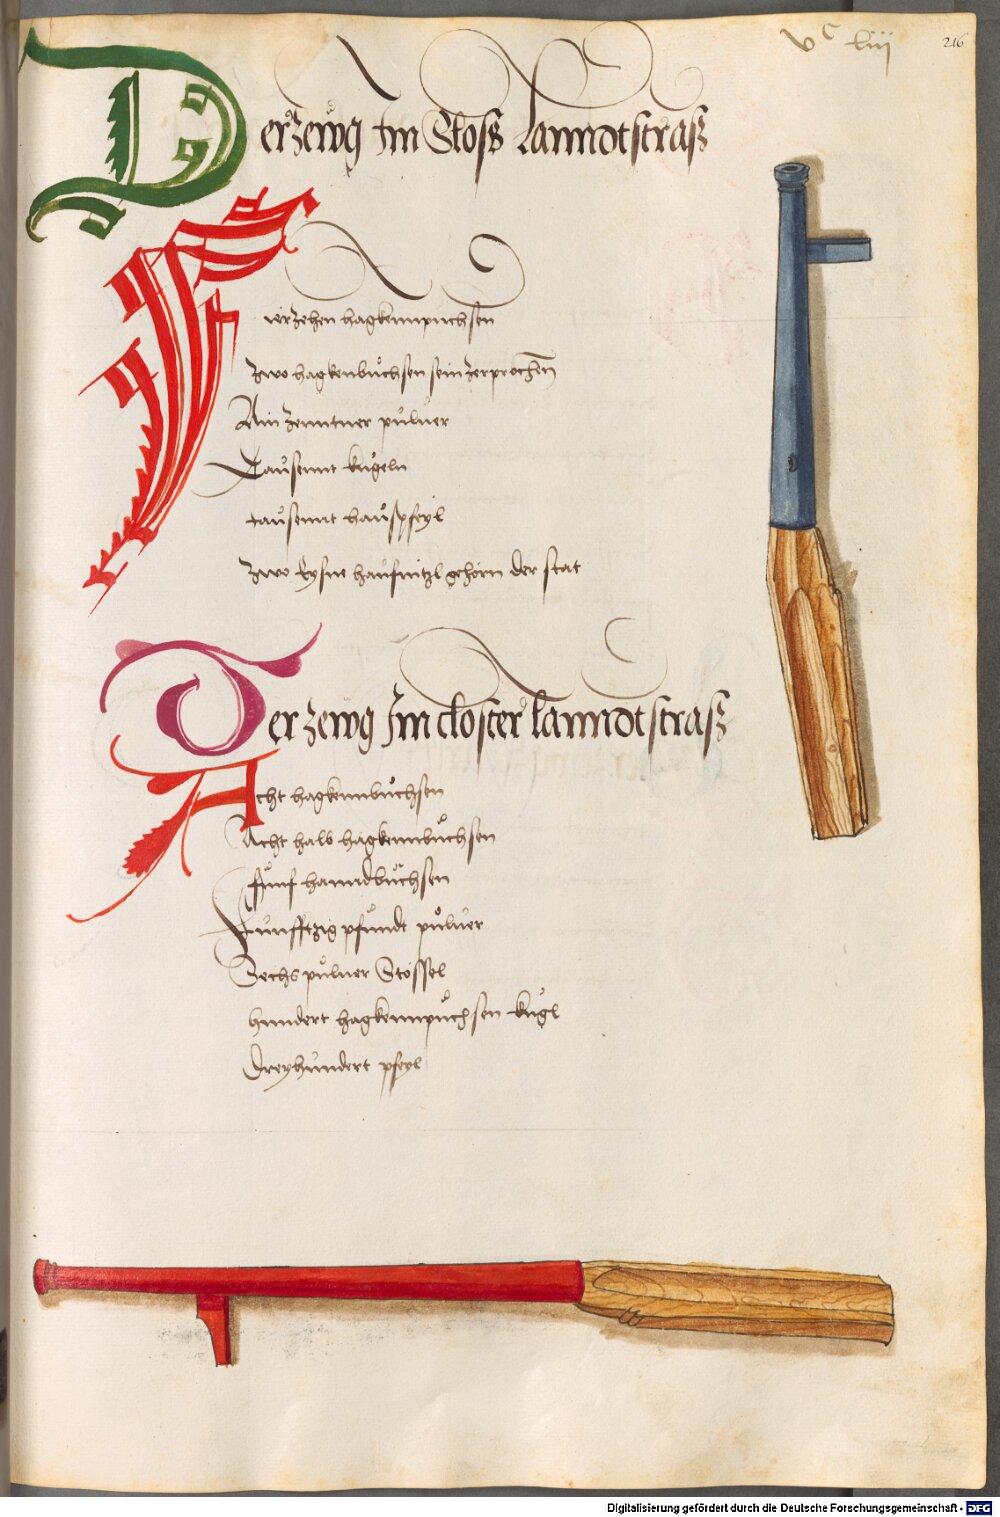 vᶜ liij
216
Der zeẃg Im Sloss Lanndtstraß
Vierzehen hagkennpuchsen
zwo hagkenbůchsen sein zerprochen̄
Ain zenntner půluer
Tausennt kugeln
tausennt hauspfeyl
zwo Eysne haufnitzl gehörn der stat
Der zeẃg Im closter lanndtstraß
Acht hagkennbůchsen
Acht halb hagkennbůchsen
fünf hanndbüchsen
Funfftzig pfundt půluer
Sechs půluer Stössel
hundert hagkennpüchsen kugl
dreyhundert pfeyl
Digitalisierung gefördert durch die Deutsche Forschungsgemeinschaft - DFG